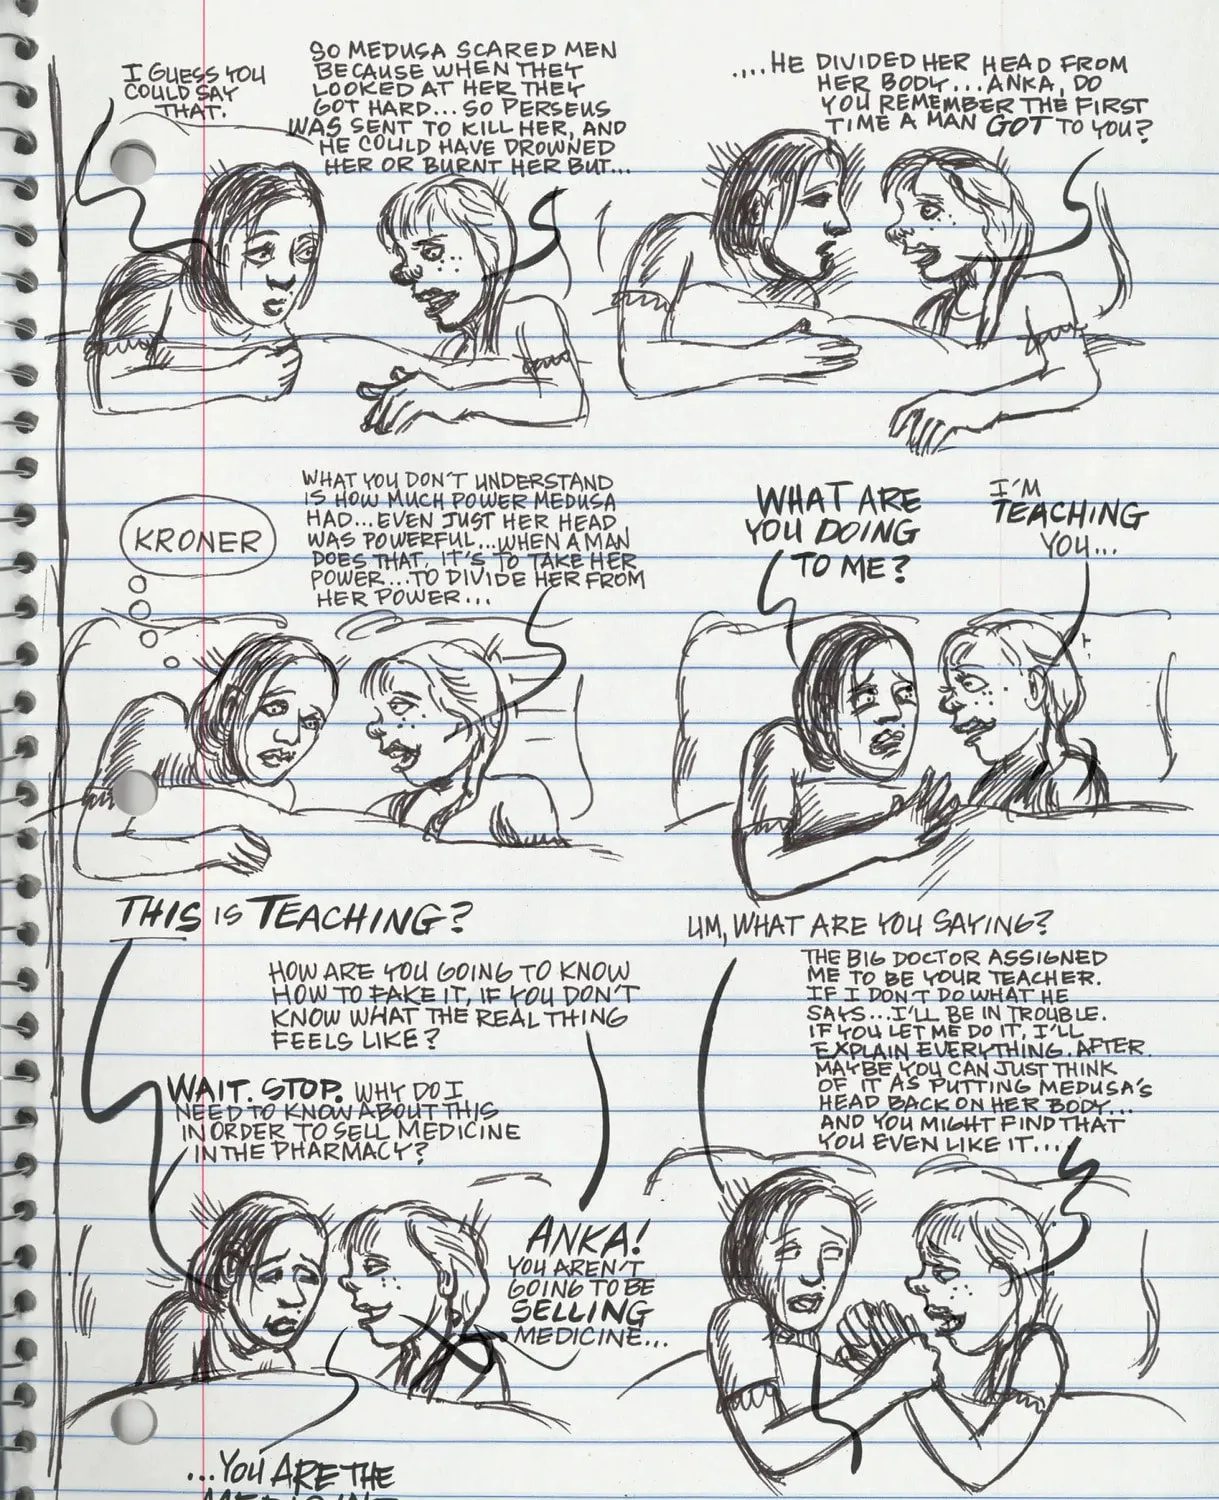 I GUESS YOU
COULD SAY
THAT.
SO MEDUSA SCARED MEN
BECAUSE WHEN THEY
LOOKED AT HER THEY
GOT HARD... SO PERSEUS
WAS SENT TO KILL HER, AND
HE COULD HAVE DROWNED
HER OR BURNT HER BUT...
....HE DIVIDED HER HEAD FROM
HER BODY... ANKA, DO
YOU REMEMBER THE FIRST
TIME A MAN GOT TO YOU?
KRONER
WHAT YOU DON'T UNDERSTAND
IS HOW MUCH POWER MEDUSA
HAD... EVEN JUST HER HEAD
WAS POWERFUL... WHEN A MAN
DOES THAT, IT'S TO TAKE HER
POWER... TO DIVIDE HER FROM
HER POWER...
WHAT ARE
YOU DOING
TO ME?
I'M
TEACHING
YOU...
THIS IS TEACHING?
HOW ARE YOU GOING TO KNOW
HOW TO FAKE IT, IF YOU DON'T
KNOW WHAT THE REAL THING
FEELS LIKE?
WAIT. STOP. WHY DO I
NEED TO KNOW ABOUT THIS
IN ORDER TO SELL MEDICINE
IN THE PHARMACY?
ANKA!
YOU AREN'T
GOING TO BE
SELLING
MEDICINE...
...YOU ARE THE
MEDICINE
UM, WHAT ARE YOU SAYING?
THE BIG DOCTOR ASSIGNED
ME TO BE YOUR TEACHER.
IF I DON'T DO WHAT HE
SAYS... I'LL BE IN TROUBLE.
IF YOU LET ME DO IT, I'LL
EXPLAIN EVERYTHING. AFTER.
MAYBE YOU CAN JUST THINK
OF IT AS PUTTING MEDUSA'S
HEAD BACK ON HER BODY...
AND YOU MIGHT FIND THAT
YOU EVEN LIKE IT...